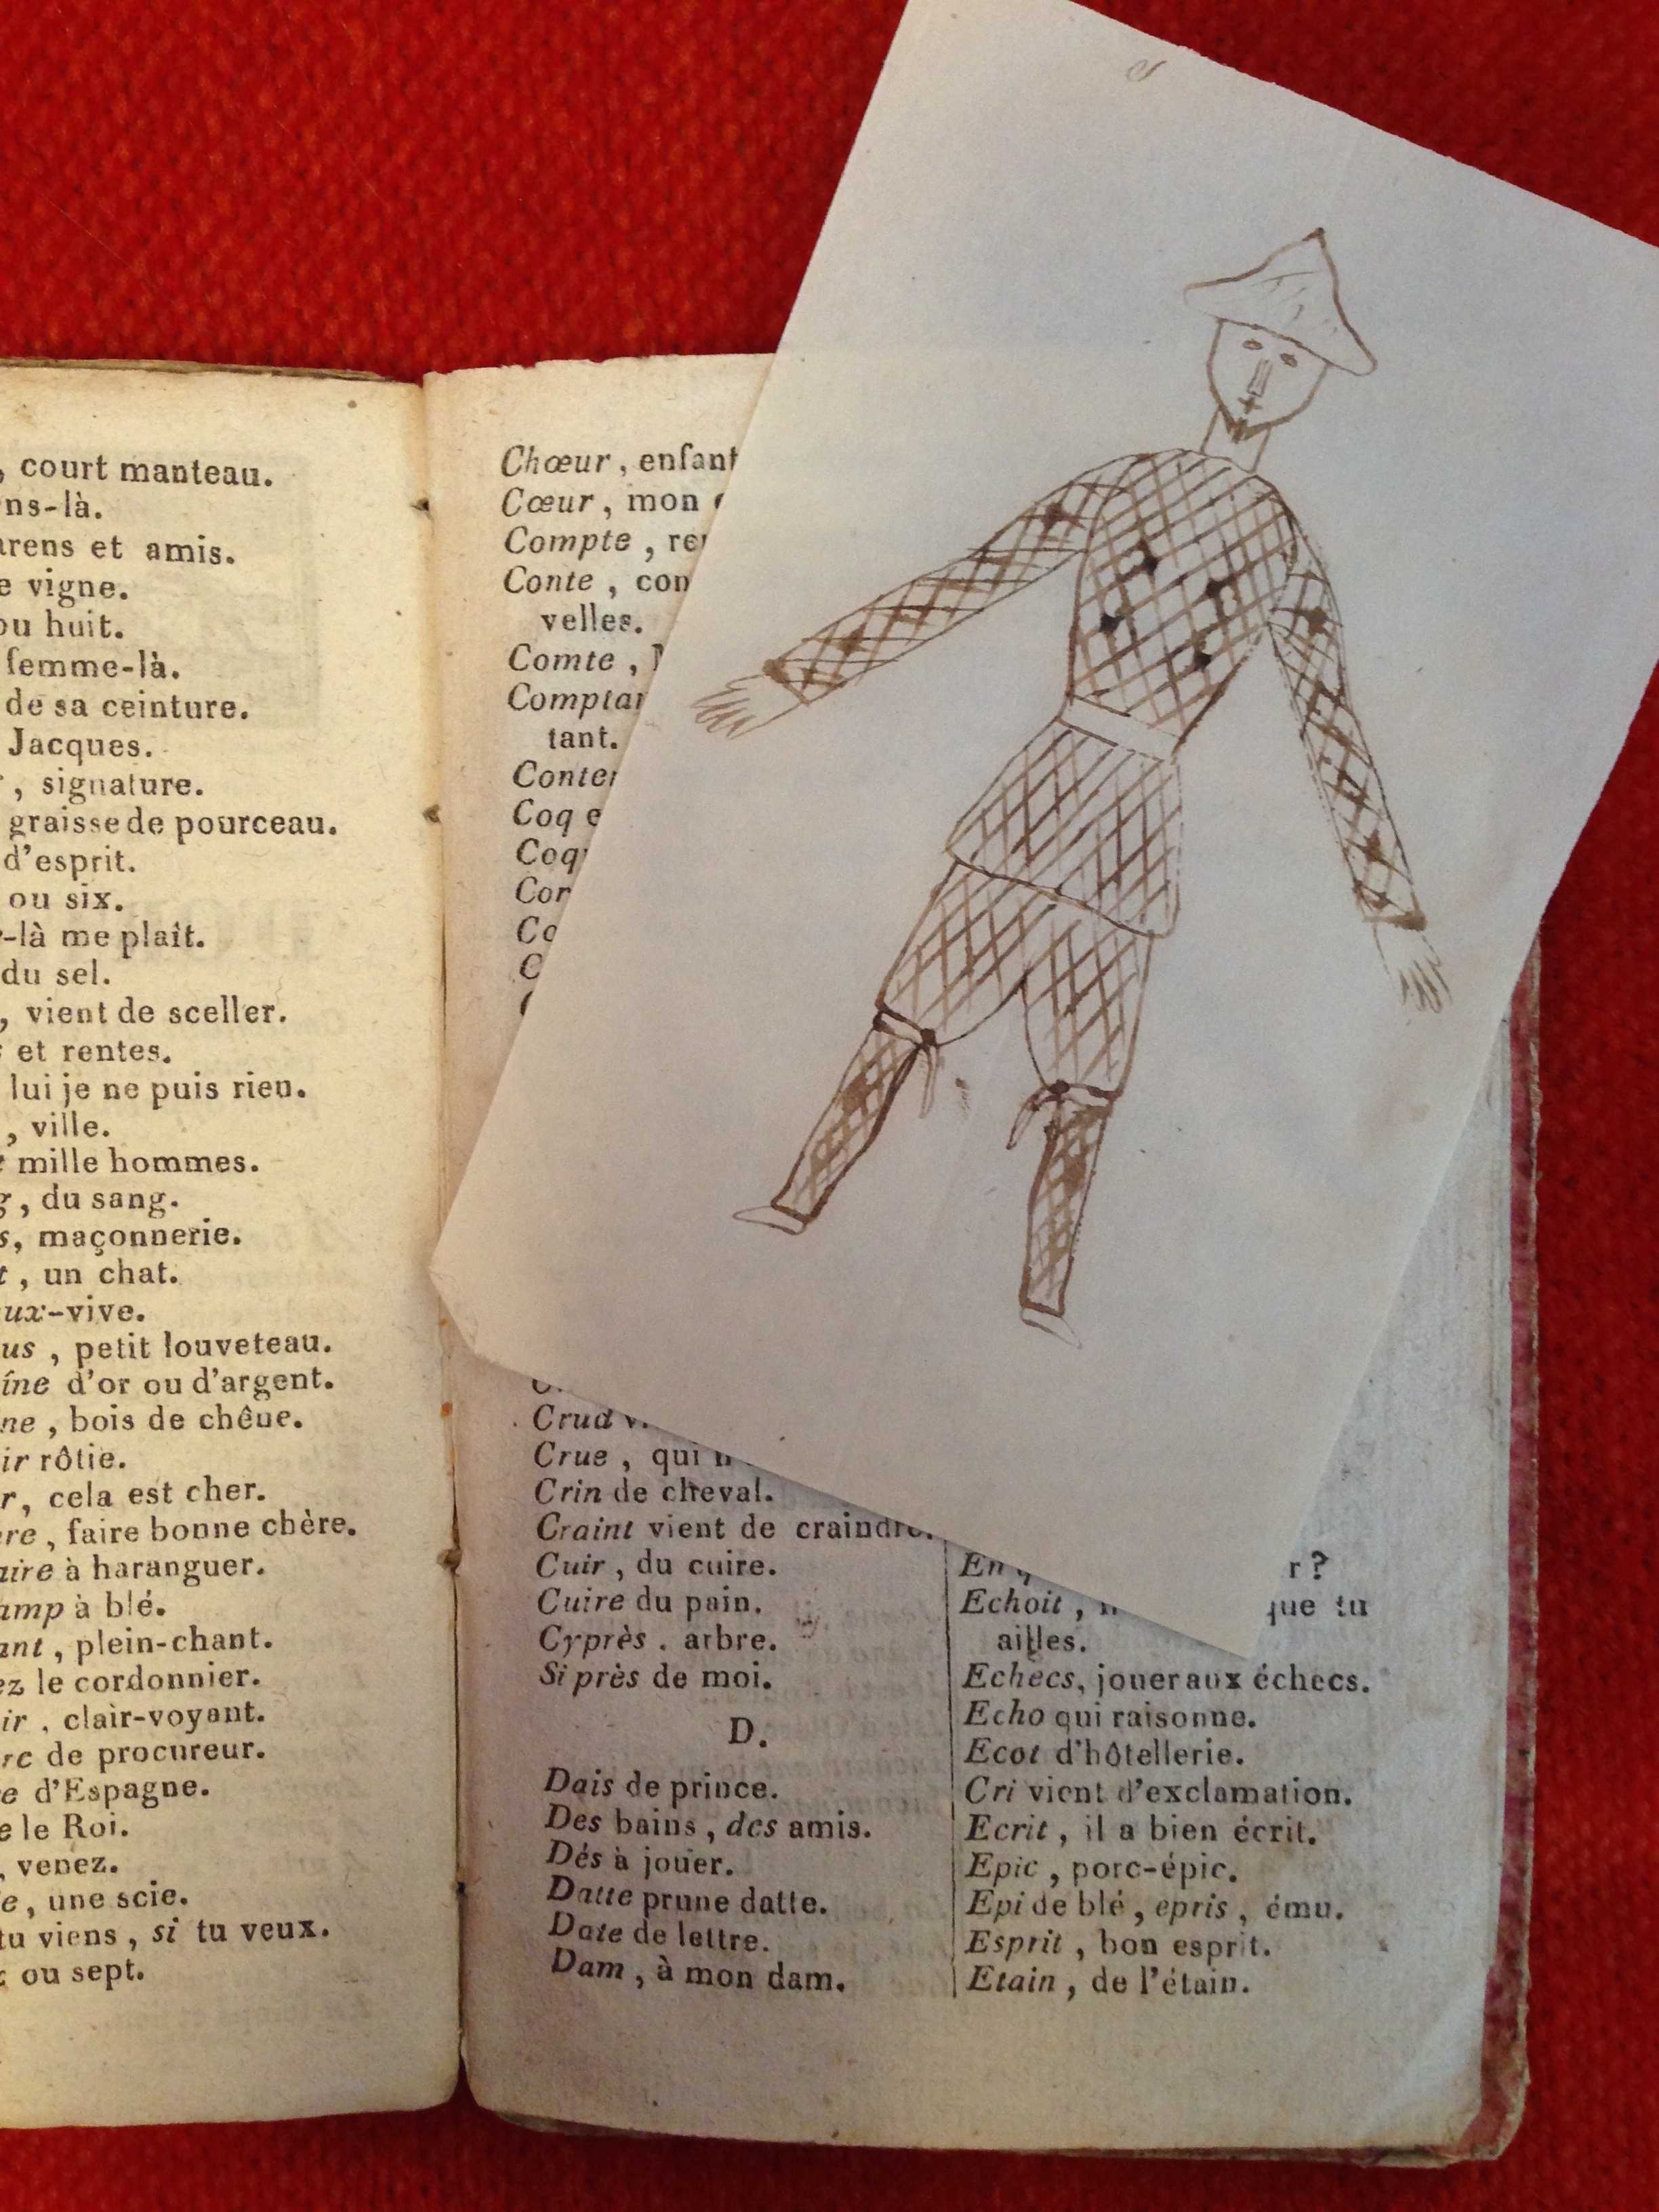 , court manteau.
ns-là.
et amis.
vigne.
ou huit.
femme-là.
de sa ceinture.
Jacques.
, signature.
graisse de pourceau.
d'esprit.
ou six.
-là me plaît.
du sel.
, vient de sceller.
et rentes.
lui je ne puis rien.
, ville.
mille hommes.
, du sang.
, maçonnerie.
, un chat.
-vive.
, petit louveteau.
d'or ou d'argent.
, bois de chêne.
rôtie.
, cela est cher.
, faire bonne chère.
à haranguer.
à blé.
, plein-chant.
le cordonnier.
, clair-voyant.
de procureur.
d'Espagne.
le Roi.
, venez.
, une scie.
tu viens, si tu veux.
ou sept.
Chœur,
Cœur, mon
Compte,
Conte,
velles.
Comte,
tant.
Coq
Crue, qui
Crin de cheval.
Craint vient de craindre.
Cuir, du cuire.
Cuire du pain.
Cyprès. arbre.
Si près de moi.
D.
Dais de prince.
Des bains, des amis.
Dés à jouer.
Datte prune datte.
Date de lettre.
Dam, à mon dam.
En r?
Echoit, que tu
ailles.
Echecs, jouer aux échecs.
Echo qui raisonne.
Ecot d'hôtellerie.
Cri vient d'exclamation.
Ecrit, il a bien écrit.
Epic, porc-épic.
Epi de blé, epris, ému.
Esprit, bon esprit.
Etain, de l'étain.